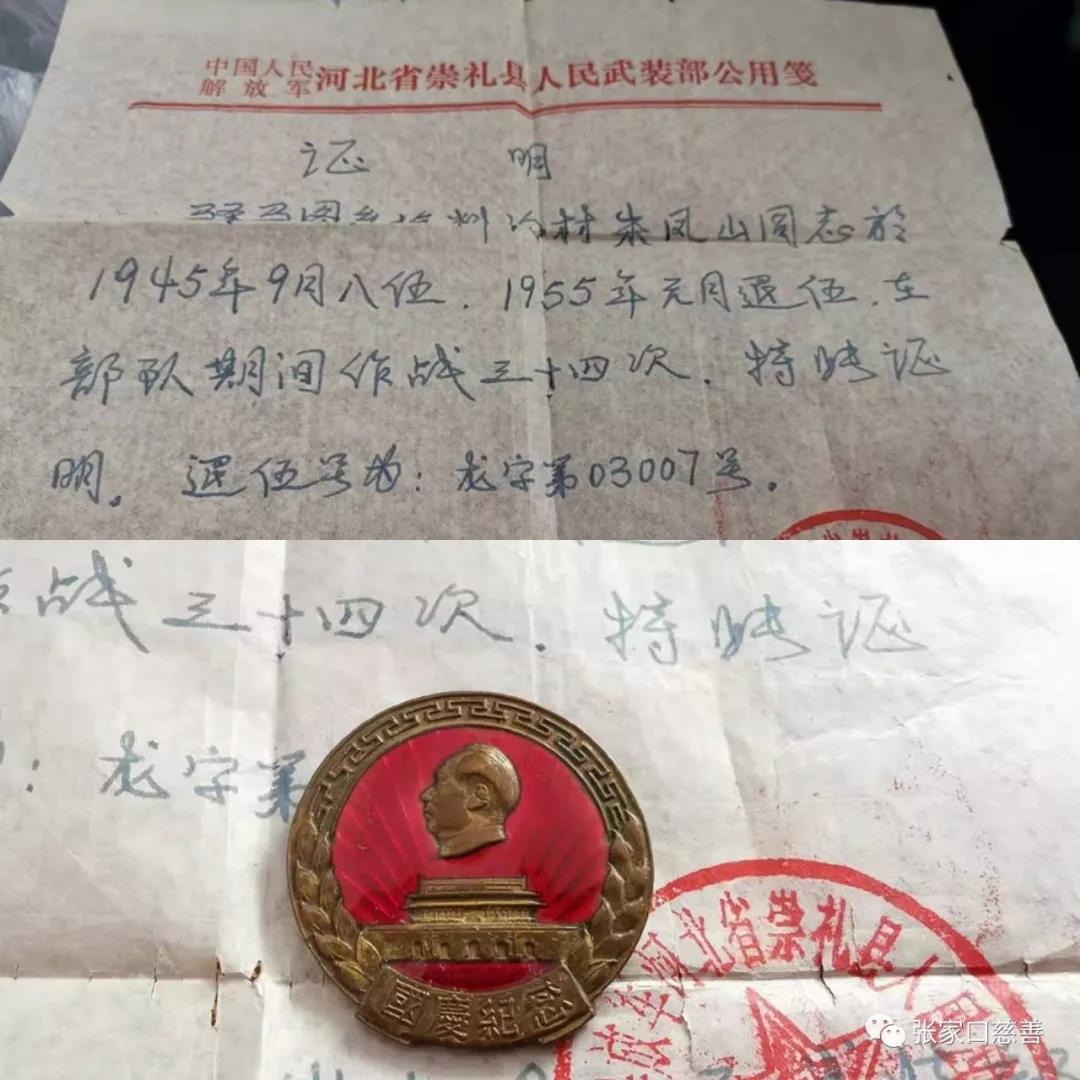 中国人民
解放军河北省崇礼县人民武装部公用笺
证 明
村朱凤山同志於
1945年9月八伍．1955年元月退伍．在
部队期间作战三十四次．特此证
明。退伍号为：龙字第03007号。
战三十四次．特此证
：龙字第
國慶紀念
河北省崇礼县人民
张家口慈善